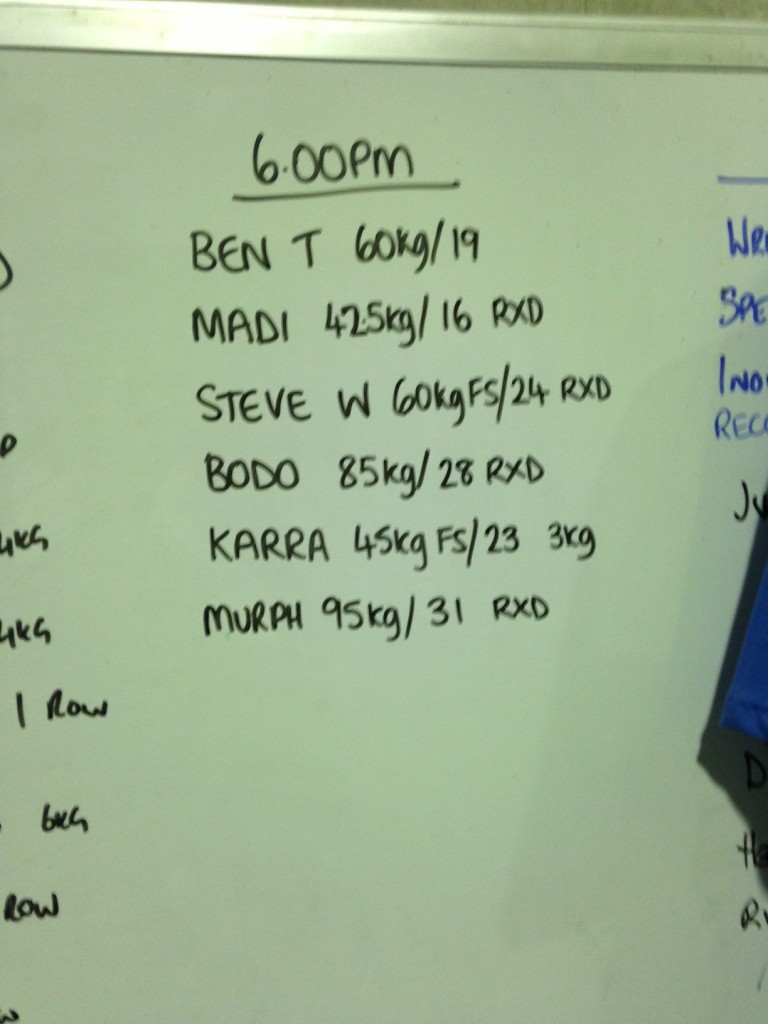 6.00PM
BEN T 60kg/19
MADI 42.5kg/16 RXD
STEVE W 60kgFS/24 RXD
BODO 85kg/28 RXD
KARRA 45kg FS/23 3kg
MURPH 95kg/31 RXD
4KG
4KG
1 ROW
6KG
ROW